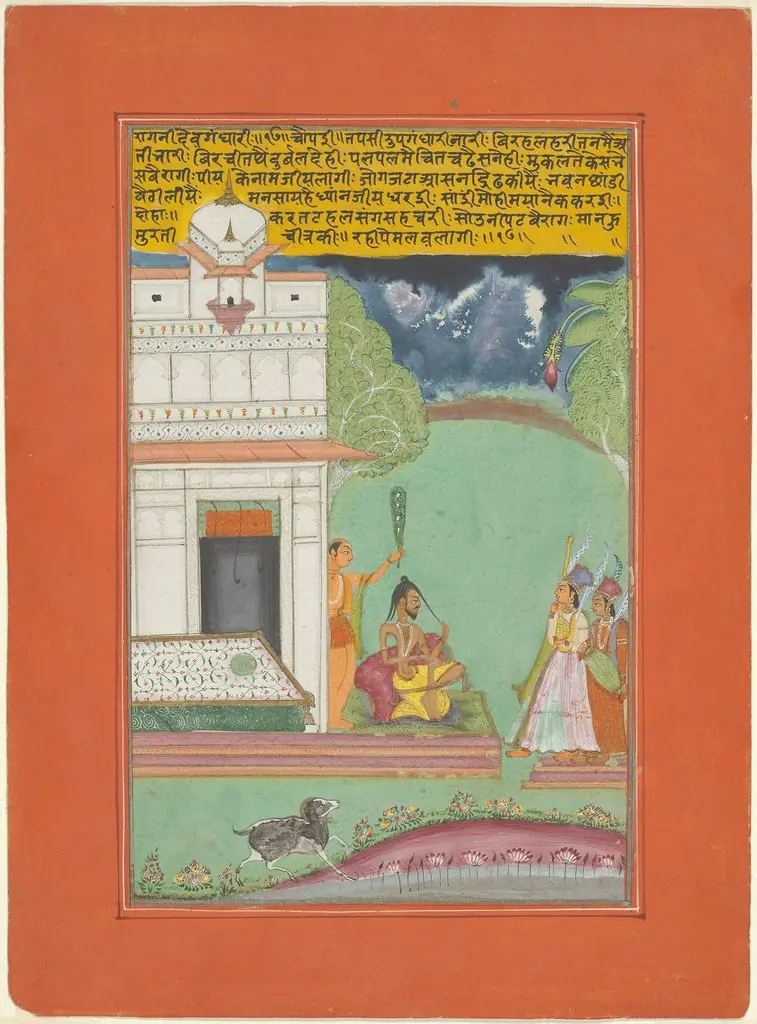 रागनी देवगंधारी ॥१७॥ चौपई ॥ तपसी उपगंधारी नारी: बिरहलहरी तनमैं अ
ती जारी: बिरची तपै दुर्बल देही: पल पल मै चित चढै सनेही: मुकलते केस ने
स बैरागी: पीय के नाम जीय लागी: जोग जटा आसन द्रिढ कीयै:
मनसा यहै ध्यान जीय धरई:
दोहा ॥ करत टहल संग सहचरी: सोउ नीपट बैराग: मानहु
मुरती चीत्र की ॥ रही पिम लव लागी: ॥१७॥ ॥ ॥